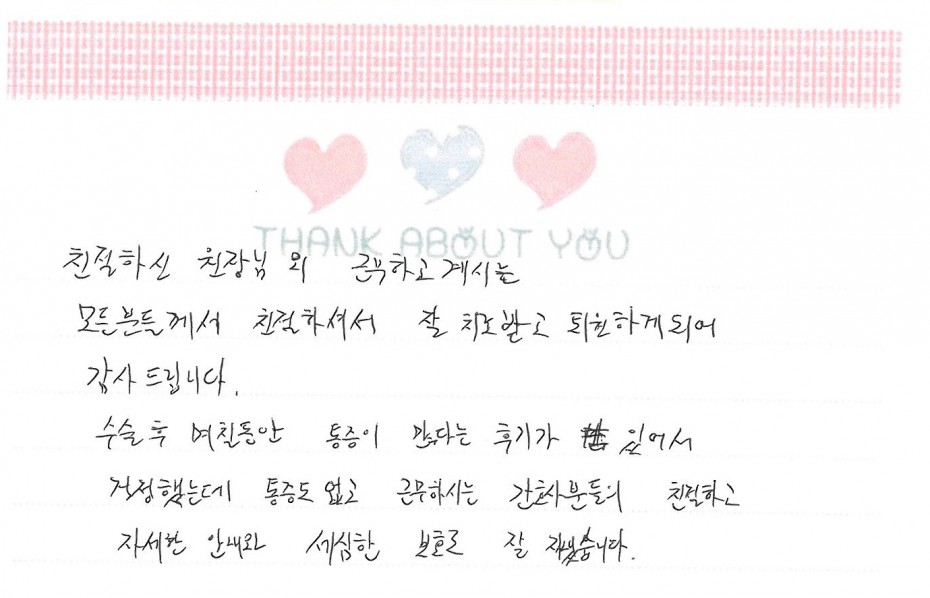 THANK ABOUT YOU
친절하신 원장님 외 근무하고 계시는
모든분들께서 친절하셔서 잘 치료받고 퇴원하게되어
감사드립니다.
수술후 며칠동안 통증이 많다는 후기가 있어서
걱정했는데 통증도 없고 근무하시는 간호사분들의 친절하고
자세한 안내와 세심한 보호로 잘 지냈습니다.